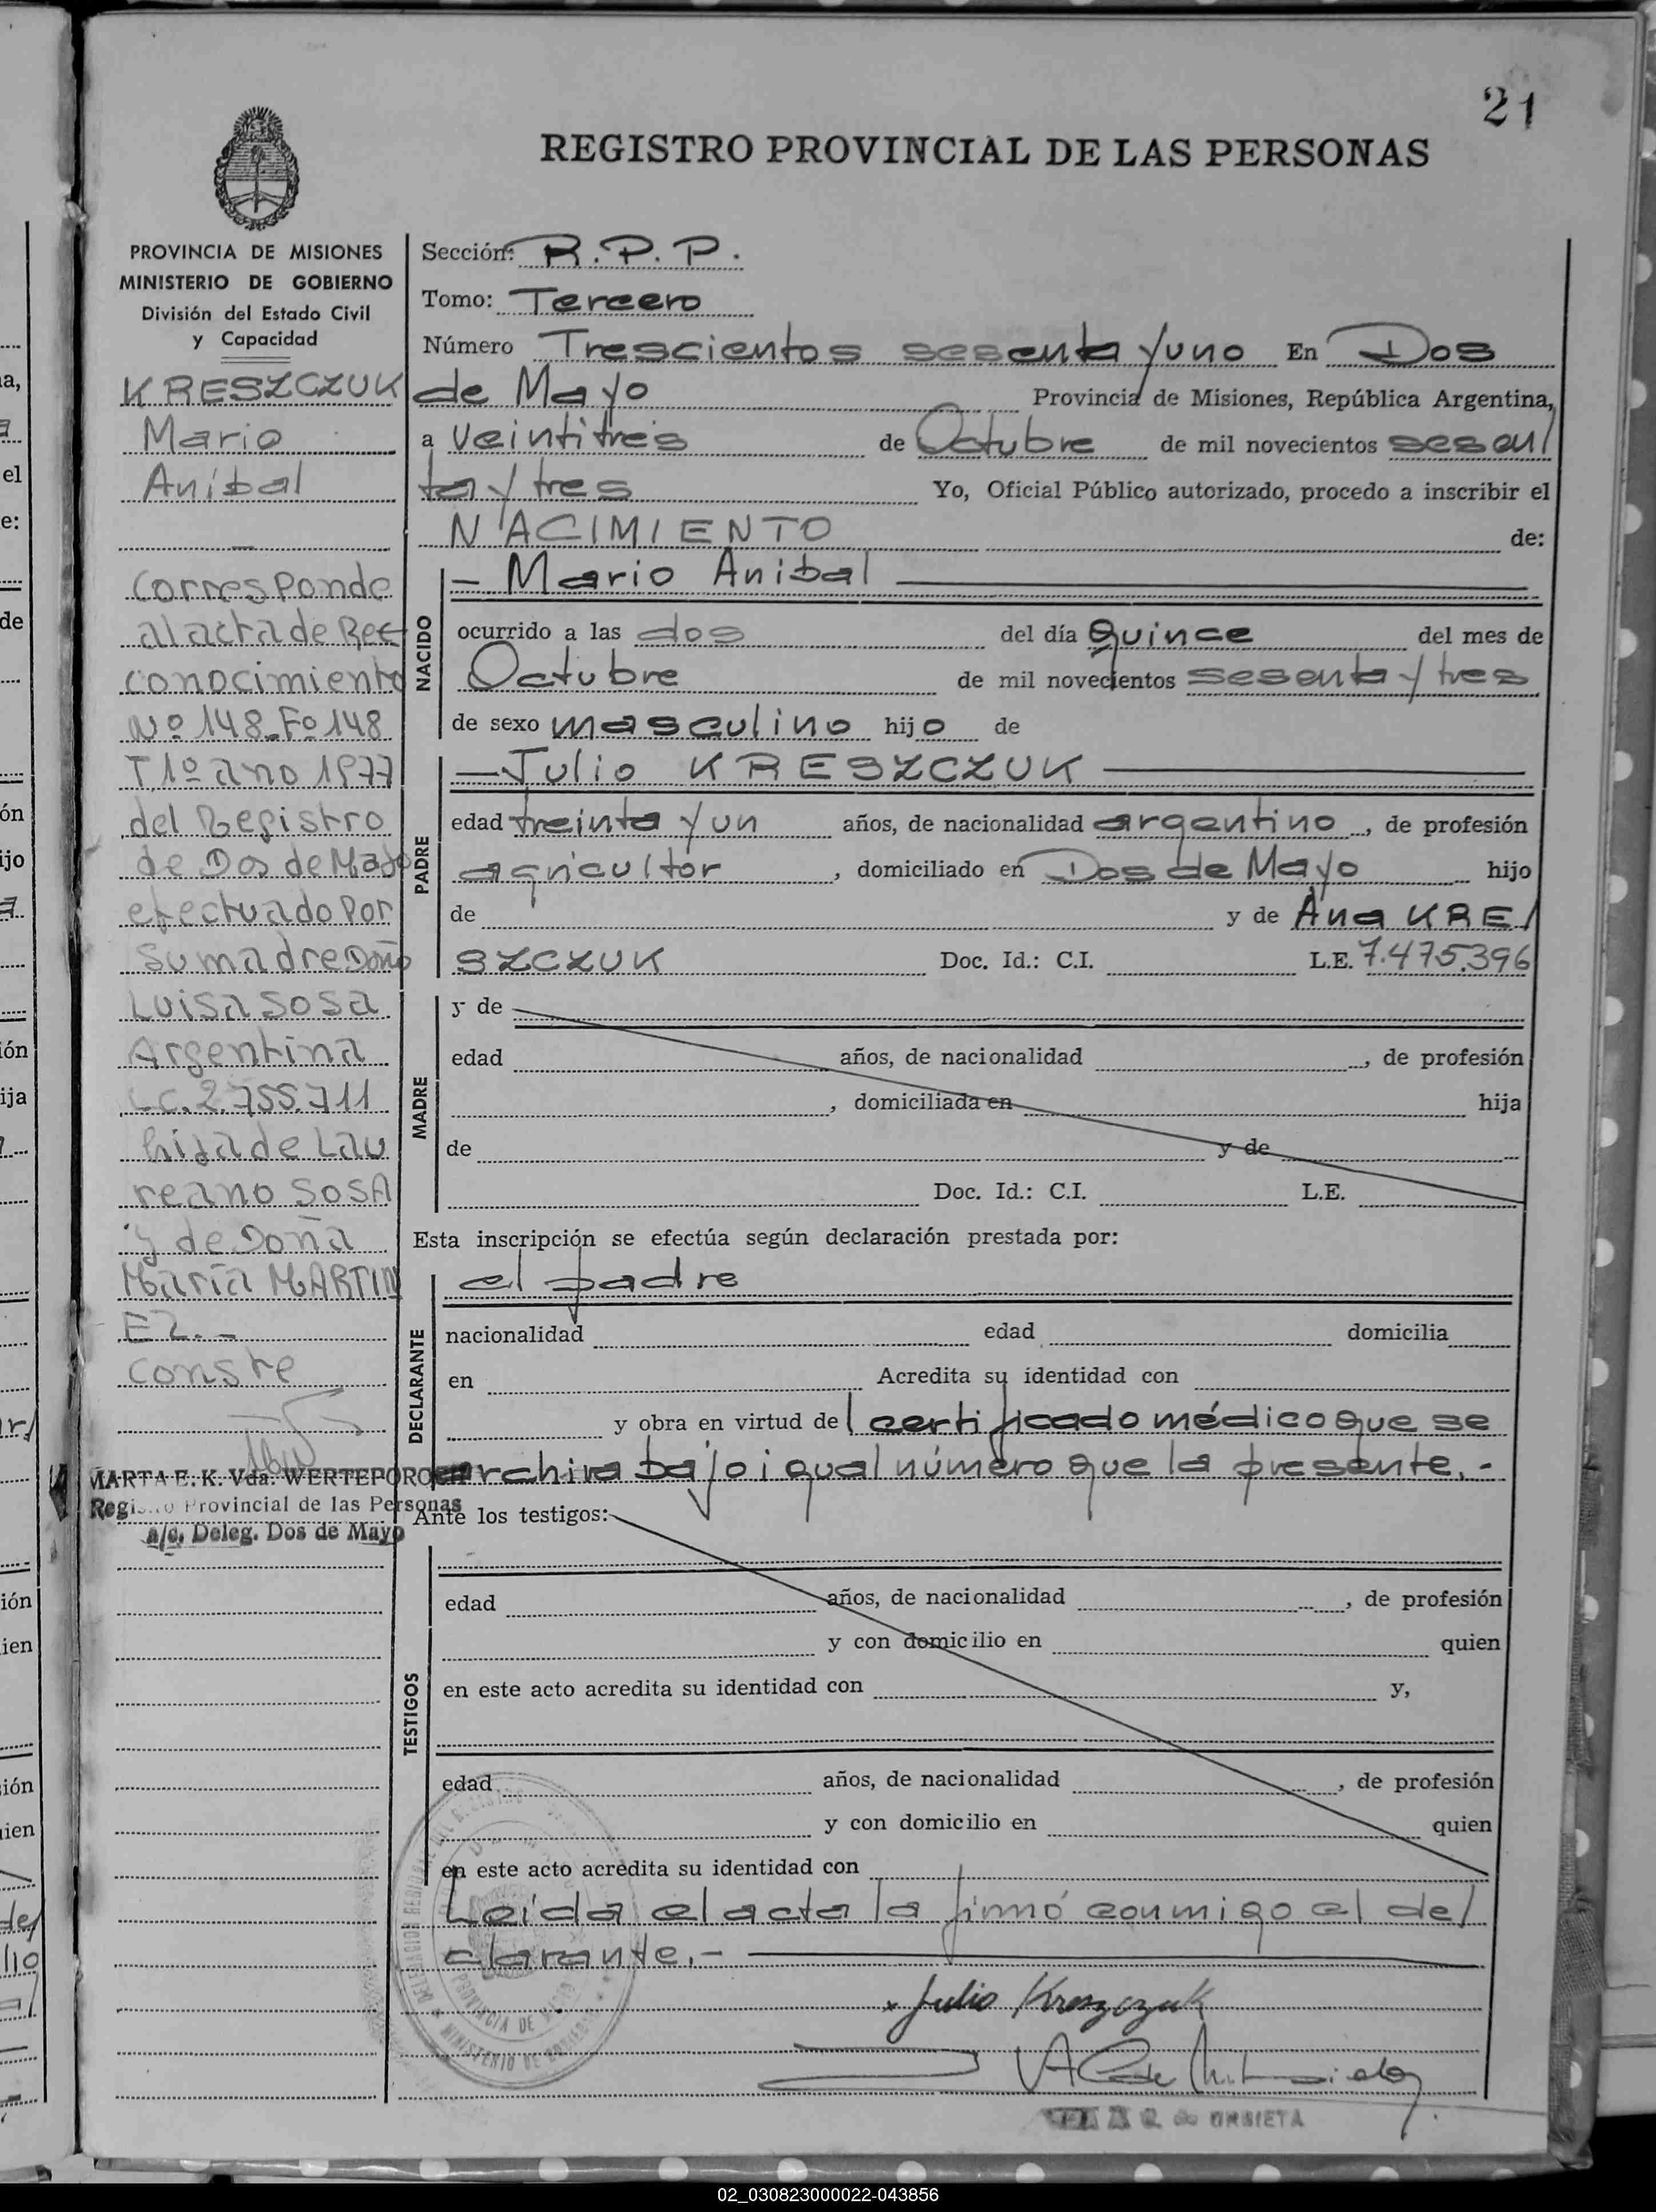 21
REGISTRO PROVINCIAL DE LAS PERSONAS
PROVINCIA DE MISIONES
MINISTERIO DE GOBIERNO
División del Estado Civil
y Capacidad
KRESZCZUK
Mario
Aníbal
—
Corresponde
al acta de Rec
conocimiento
Nº 148 Fº 148
T 1º año 1977
del Registro
de Dos de Mayo
efectuado Por
su madre Doña
Luisa SOSA
Argentina
LC. 2.755.711
hija de Lau
reano SOSA
y de Doña
María MARTIN
EZ.-
Conste
MARTA E. K. Vda. WERTEPORO
Registro Provincial de las Personas
a/c. Deleg. Dos de Mayo
Sección: R.P.P.
Tomo: Tercero
Número Trescientos sesenta y uno En Dos
de Mayo Provincia de Misiones, República Argentina,
a veintitrés de Octubre de mil novecientos sesen/
ta y tres Yo, Oficial Público autorizado, procedo a inscribir el
NACIMIENTO de:
NACIDO
— Mario Anibal
ocurrido a las dos del día quince del mes de
Octubre de mil novecientos sesenta y tres
de sexo masculino hijo de
PADRE
— Julio KRESZCZUK
edad treinta y un años, de nacionalidad argentino, de profesión
agricultor, domiciliado en Dos de Mayo hijo
de y de Ana KRE/
SZCZUK Doc. Id.: C.I. L.E. 7.475.396
MADRE
y de
edad años, de nacionalidad , de profesión
, domiciliada en hija
de y de
Doc. Id.: C.I. L.E.
Esta inscripción se efectúa según declaración prestada por:
DECLARANTE
el padre
nacionalidad edad domicilia
en Acredita su identidad con
y obra en virtud del certificado médico que se
archiva bajo igual número que la presente.-
Ante los testigos:
TESTIGOS
edad años, de nacionalidad , de profesión
y con domicilio en quien
en este acto acredita su identidad con y,
edad años, de nacionalidad , de profesión
y con domicilio en quien
en este acto acredita su identidad con
Leída el acta la firmó conmigo el de/
clarante.-
Julio Kreszczuk
de URBIETA
PROVINCIA DE
MINISTERIO DE
02_030823000022-043856